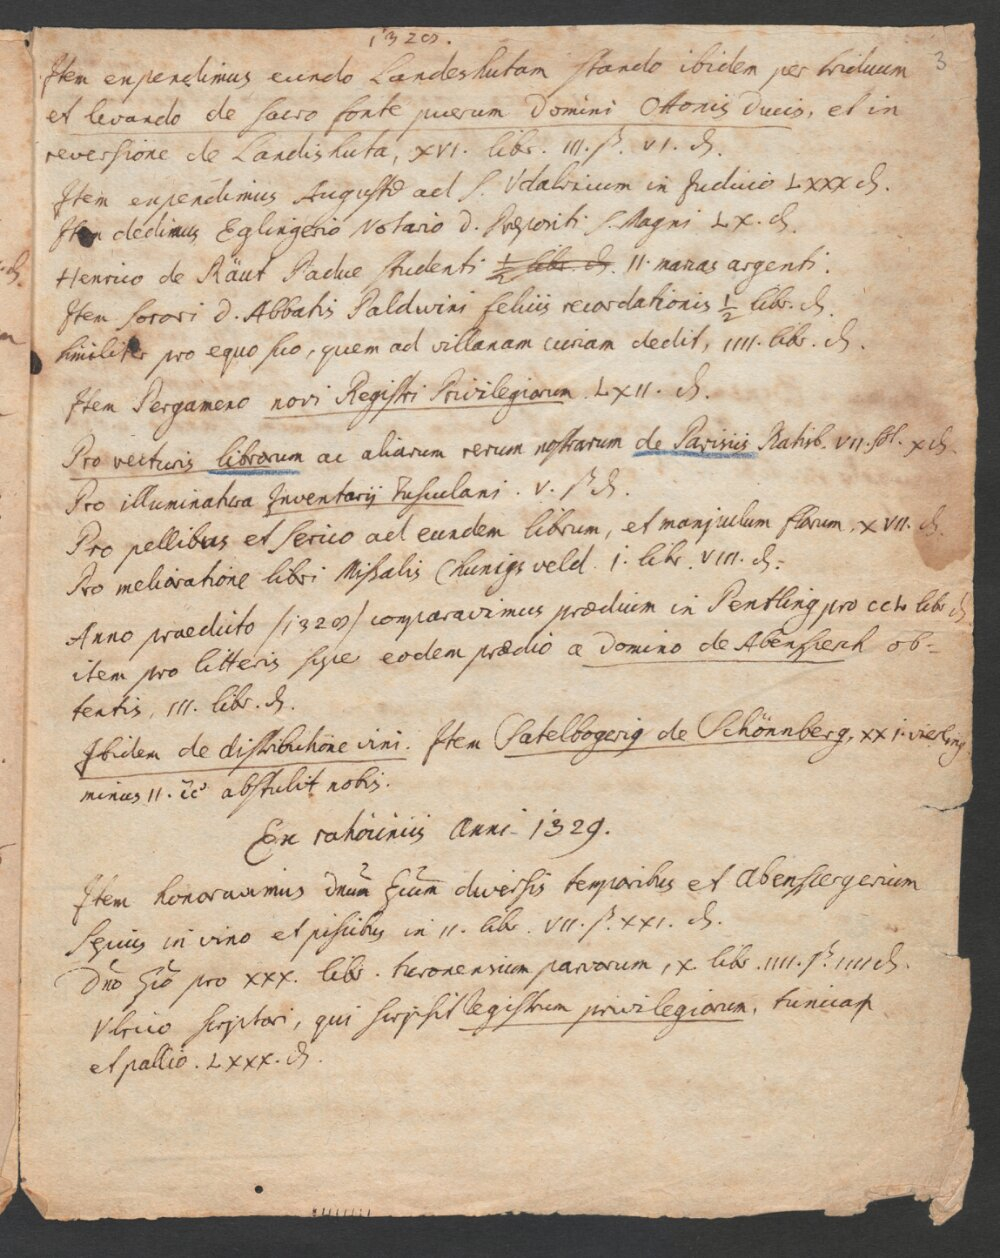 1328.
3
Item expendimus eundo Landeshutam stando ibidem per triduum
et levando de sacro fonte puerum Domini Ottonis Ducis, et in
reversione de Landishuta, XVI. libr. III. ß. VI. ₰.
Item expendimus Auguste ad S. Vdalricum in Judicio LXXX ₰.
Item dedimus Eglingerio Notario D. Prepositi S. Magni LX. ₰.
Henrico de Räut Padue studenti ½ libr. ₰. II. marcas argenti.
Item sorori D. Abbatis Paldwini felicis recordationis ½ libr. ₰.
similiter pro equo suo, quem ad villanam curiam dedit, IIII. libr. ₰.
Item Pergameno novi Registri Privilegiorum LXII. ₰.
Pro vecturis librorum ac aliarum rerum nostrarum de Parisiis Ratisb. VII. sol. X ₰.
Pro illuminatura Inventarij Tusculani. V. ß ₰.
Pro pellibus et serico ad eundem librum, et manjulum florum, XVII. ₰.
Pro melioratione libri Missalis Chunigsveld. I. libr. VIII. ₰.
Anno praedicto /1328/ comparavimus prædium in Pentling pro CCL libr ₰
item pro litteris super eodem prædio a Domino de Abensperch ob-
tentis, III. libr. ₰.
Ibidem de distributione vini. Item Satelbogerig de Schönnberg, XXI. vierling
minus II. abstulit nobis.
Ex rationiis Anni 1329.
Item honoravimus diversis temporibus et Abenspergerium
sepius in vino et piscibus in II. libr. VII. ß. XXI. ₰.
pro XXX. libr. turonensium parvorum, X. libr. IIII. ß. IIII ₰.
Vlrico scriptori, qui scripsit Registrum privilegiorum, tunicam
et pallio. LXXX. ₰.